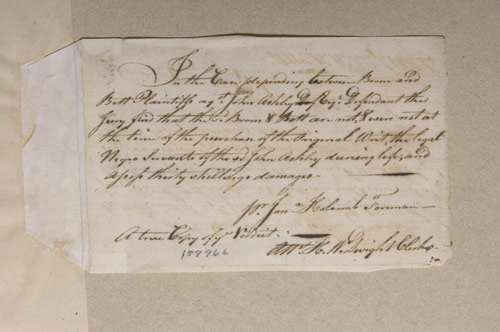 In the Case depending between Brom and
Bett Plaintiffs agt. John Ashley Esqr. Defendant the
Jury find that the sd. Brom & Bett are not, & were not at
the time of the purchase of the Original Writ, the legal
Negro Servants of the sd. John Ashley during life, and
assess thirty shillings damages.
pr. Jona. Holcomb Foreman
A true Copy of ye Verdict.
157966
Attr. H. W. Dwight Clerk